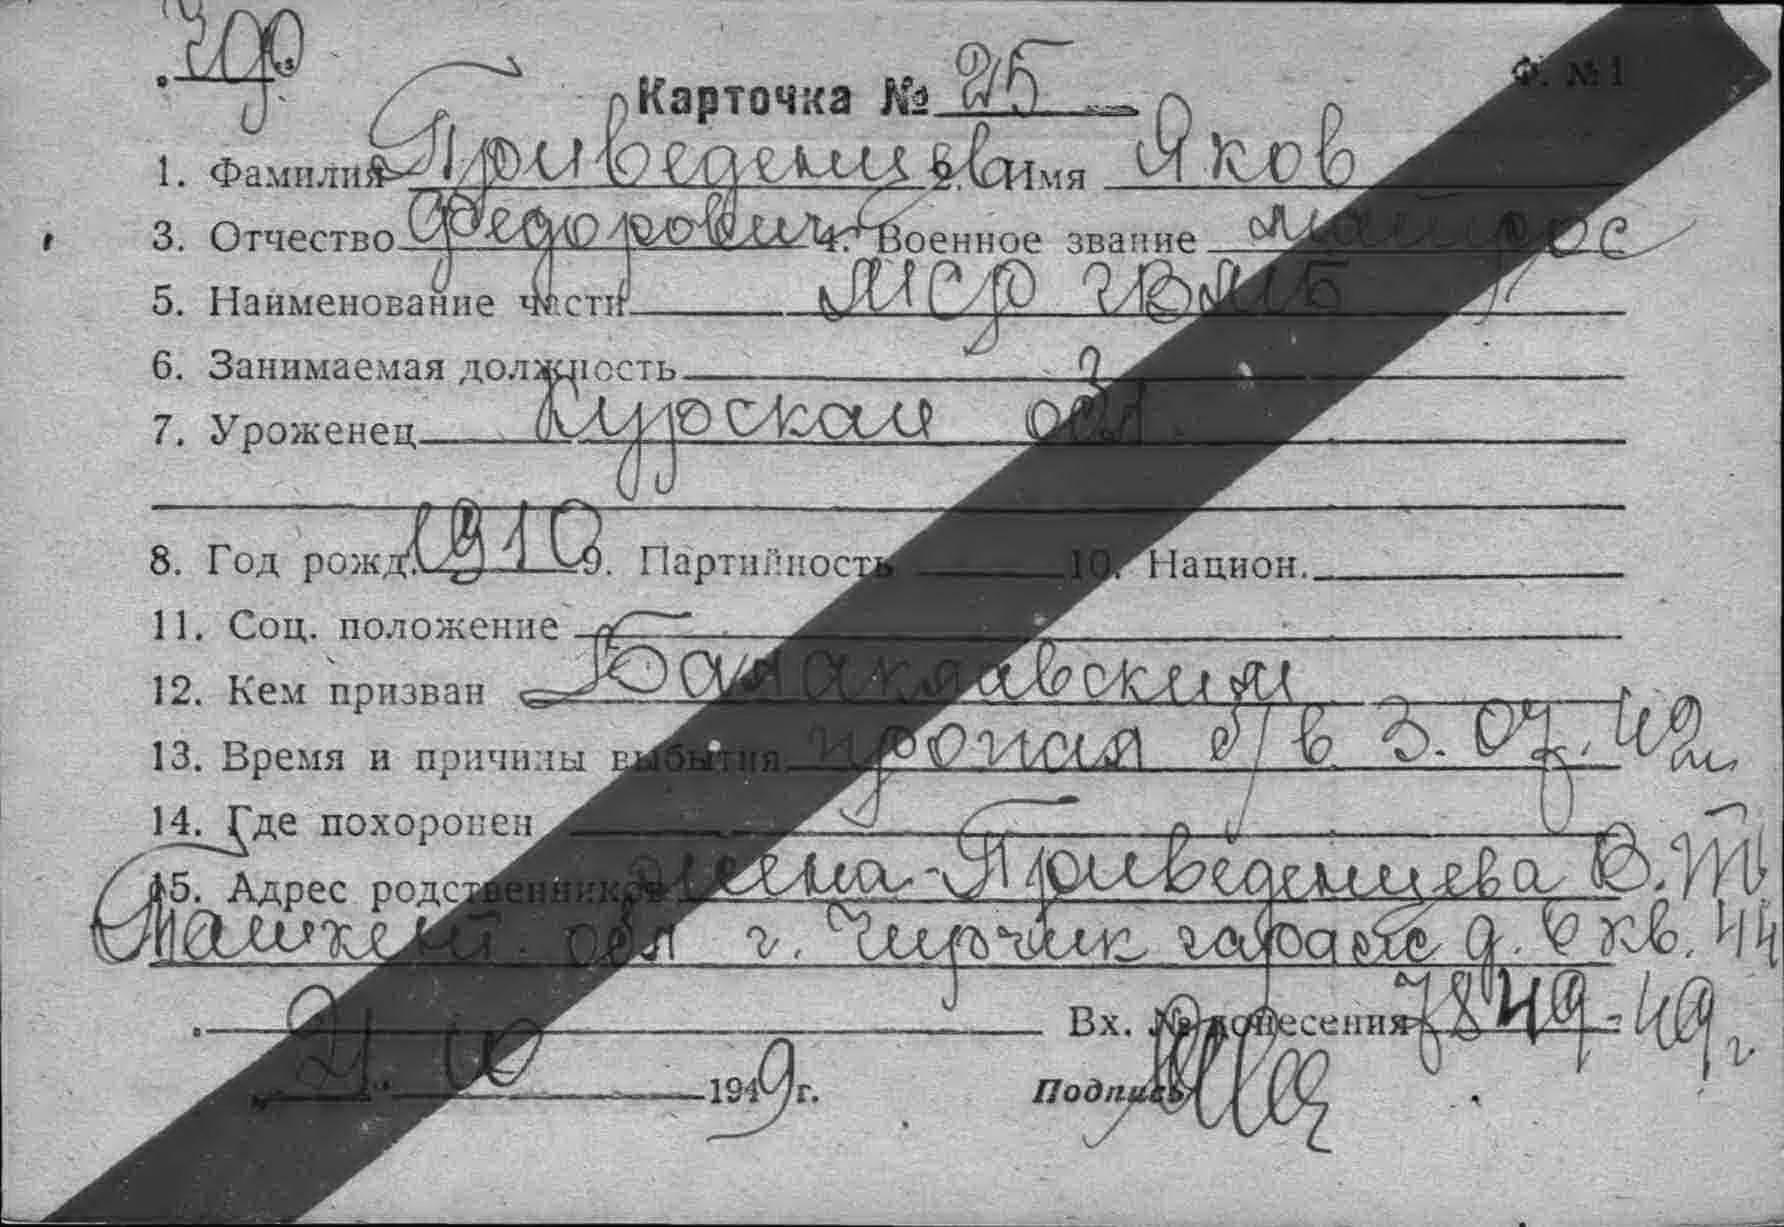 Ф. №1
Карточка № 25
1. Фамилия Приведенцев 2. Имя Яков
3. Отчество Федорович 4. Военное звание матрос
5. Наименование части МСР ГВМБ
6. Занимаемая должность
7. Уроженец Курская обл.
8. Год рожд. 1910 9. Партийность 10. Национ.
11. Соц. положение
12. Кем призван Балаклавским
13. Время и причины выбытия пропал б/в 3.07.42г.
14. Где похоронен
15. Адрес родственников жена - Приведенцева В.Т.
Ташкент. обл г. Чирчик гараж д. 6 кв. 44
Вх. № донесения 7849-49г
"21" 10 1949г. Подпись